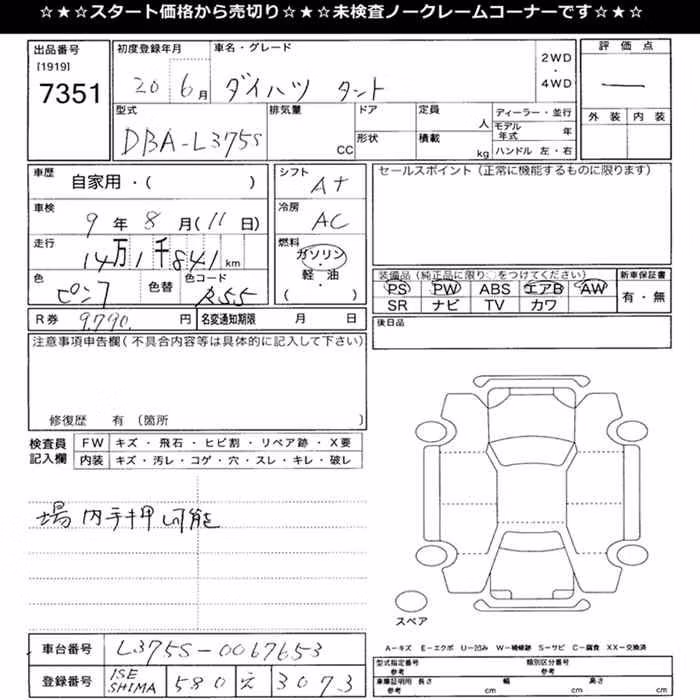 ☆★☆スタート価格から売切り☆★☆未検査ノークレームコーナーです☆★☆
出品番号
[1919]
7351
初度登録年月
20 6月
車名・グレード
ダイハツ タント
2WD
・
4WD
評価点
—
外装 内装
型式
DBA-L375S
排気量
CC
ドア
形状
定員
人
積載
kg
ディーラー・並行
モデル年式 年
ハンドル 左・右
車歴
自家用・( )
車検
9年8月(11日)
走行
14万1千841km
色
ピンク
色替
色コード
R55
シフト
AT
冷房
AC
燃料
ガソリン
・
軽・油
( )
セールスポイント(正常に機能するものに限ります)
装備品(純正品に限り○をつけてください)
PS PW ABS エアB AW
SR ナビ TV カワ
新車保証書
有・無
R券 9790円
名変通知期限 月 日
後日品
注意事項申告欄(不具合内容等は具体的に記入して下さい)
修復歴 有(箇所 )
検査員
記入欄
FW キズ・飛石・ヒビ割・リペア跡・X要
内装 キズ・汚レ・コゲ・穴・スレ・キレ・破レ
場内手押し可能
スペア
A−キズ E−エクボ U−凹み W−補修跡 S−サビ C−腐食 XX−交換済
車台番号
L375S-0067653
登録番号
ISE
SHIMA
580 え 3073
型式指定番号
参考
類別区分番号
参考
車庫証明用
参考
長さ cm
幅 cm
高さ cm